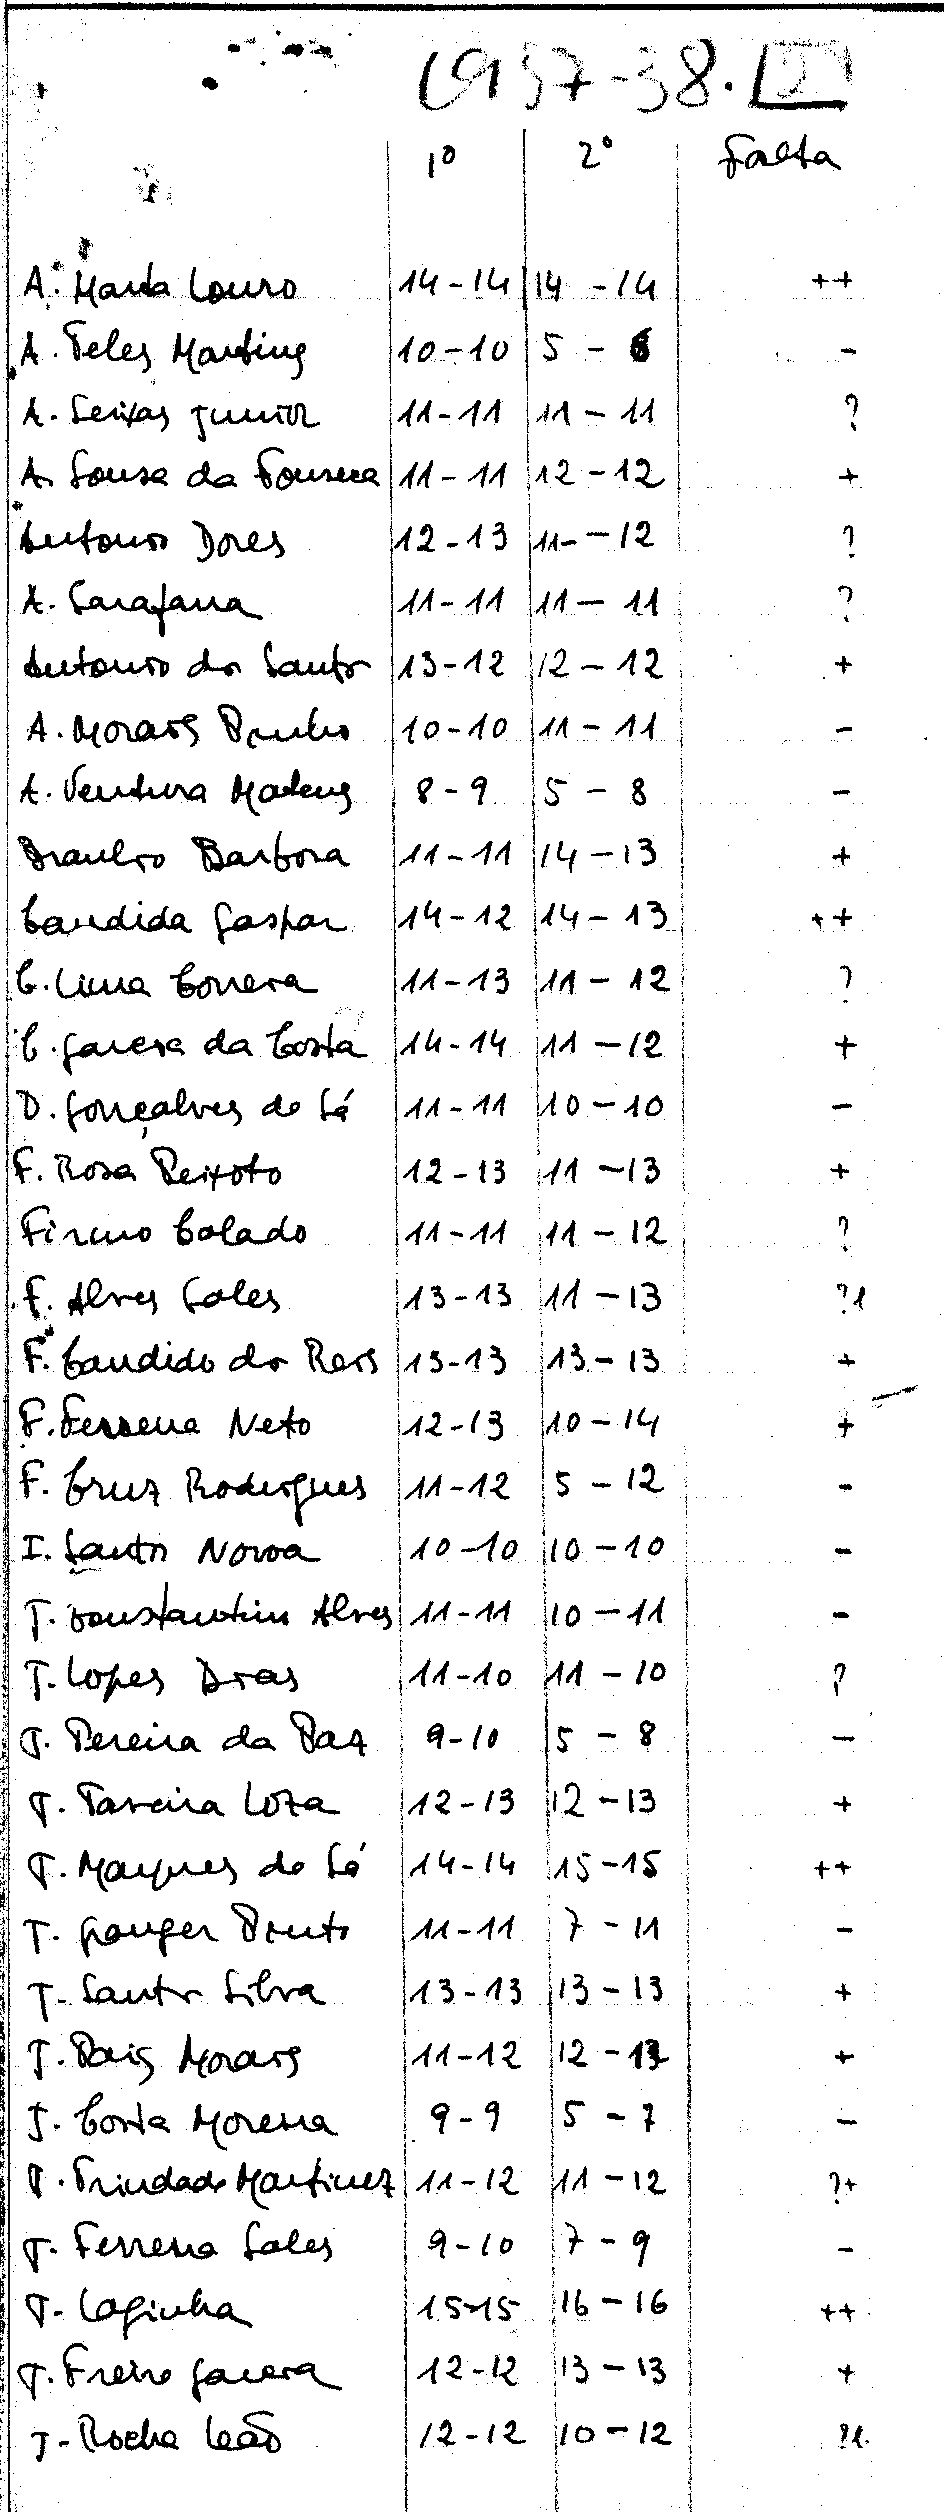 1937-38.
1º 2º Falta
A. Manta Louro 14-14 14-14 ++
A. Teles Martins 10-10 5-6 -
A. Seixas Junior 11-11 11-11 ?
A. Sousa da Fonseca 11-11 12-12 +
Antonio Dores 12-13 11--12 ?
A. Sarafana 11-11 11-11 ?
Antonio dos Santos 13-12 12-12 +
A. Morais Pinho 10-10 11-11 -
A. Ventura Mateus 8-9 5-8 -
Braulio Barbosa 11-11 14-13 +
Candida Gaspar 14-12 14-13 ++
C. Lima Correia 11-13 11-12 ?
C. Garcia da Costa 14-14 11-12 +
D. Gonçalves de Sá 11-11 10-10 -
F. Rosa Peixoto 12-13 11-13 +
Firmo Calado 11-11 11-12 ?
F. Alves Sales 13-13 11-13 ?
F. Candido dos Reis 13-13 13-13 +
F. Ferreira Neto 12-13 10-14 +
F. Cruz Rodrigues 11-12 5-12 -
I. Santos Novoa 10-10 10-10 -
J. Constantin Alves 11-11 10-11 -
J. Lopes Dias 11-10 11-10 ?
J. Pereira da Paz 9-10 5-8 -
J. Taveira Loza 12-13 12-13 +
J. Marques de Sá 14-14 15-15 ++
J. Granger Pinto 11-11 7-11 -
J. Santos Silva 13-13 13-13 +
J. Pais Morais 11-12 12-13 +
J. Costa Moreira 9-9 5-7 -
J. Trindade Martinez 11-12 11-12 ?+
J. Ferreira Sales 9-10 7-9 -
J. Laginha 15-15 16-16 ++
J. Freire Garcia 12-12 13-13 +
J. Rocha Leão 12-12 10-12 ?